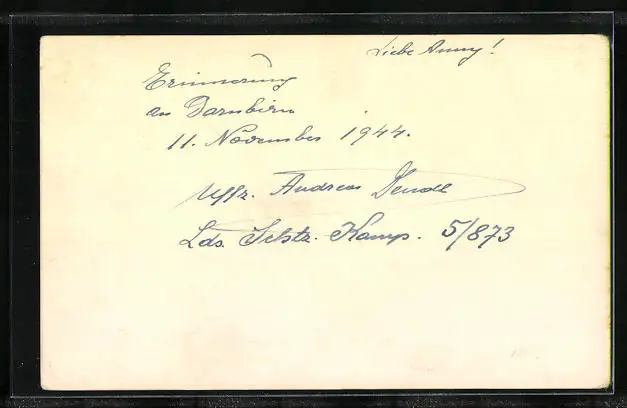 Liebe Anny!
Erinnerung
an Dornbirn
11. November 1944.
Uffz. Andreas
Lds. Schtz. Komp. 5/873